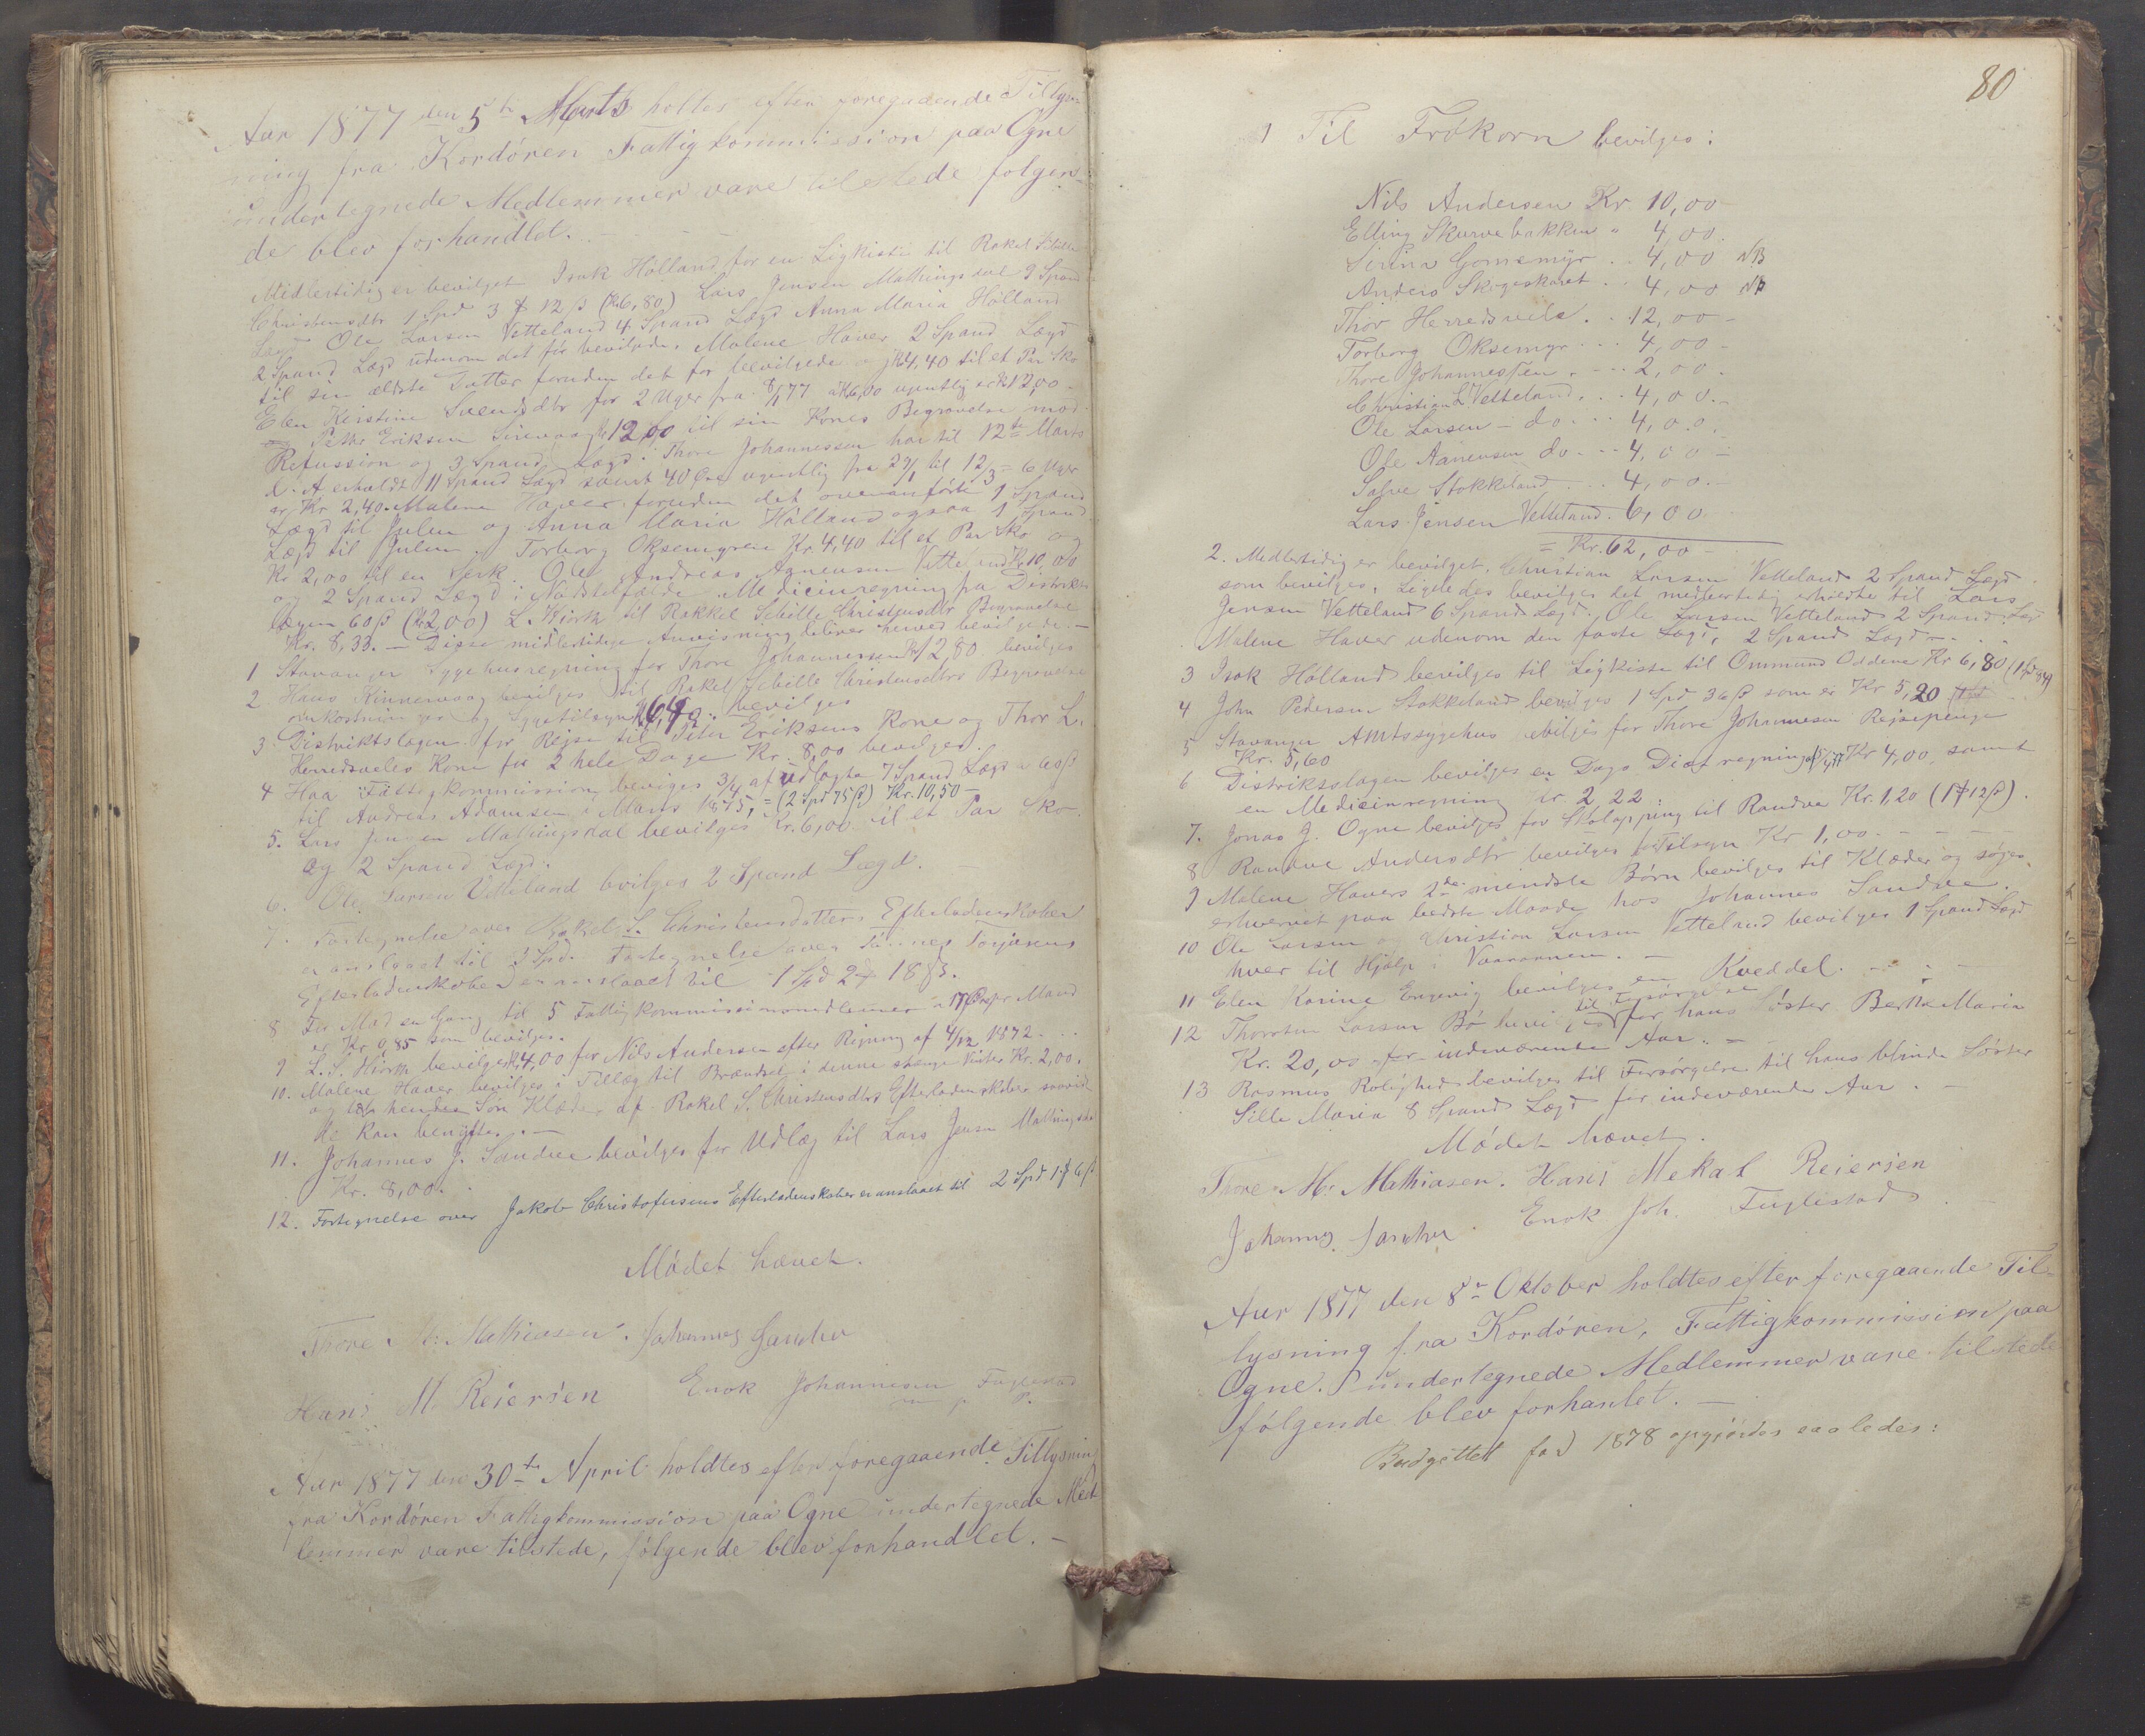 Aar 1877 den 5te Marts holtes efter foregaaende Tillys=
ning fra Kordören Fattigkommission paa Ogne
undertegnede Medlemmer vare tilstede folgen=
de blev forhandlet. -
Midlertidig er bevilget Isak Hölland for en Ligkiste til Rakel Sibille
Christensdtr 1 Spd 3 ₰ 12 ß (Kr 6,80) Lars Jensen Mathingsdal 9 Spand
Lægd Ole Larsen Vetteland 4 Spand Lægd Anna Maria Hölland
2 Spand Lægd udenom det för bevilgede. Malene Haver 2 Spand Lægd
til sin ældste Datter foruden det for bevilgede og Kr 4,40 til et Par Sko
Elen Kirstine Svendsdtr for 2 Uger fra 8/1 77 a Kr 6,00 ugentlig er Kr 12,00 -
Peder Eriksen Sirevaag Kr 12,00 til sin Kones Begravelse mod
Refussion og 3 Spand Lægd. Thore Johannessen har til 12te Marts
d. A. erholdt 11 Spand Lægd samt 40 Öre ugentlig fra 29/1 til 12/3 = 6 Uger
er Kr 2,40. Malene Haver foruden det ovenanförte 1 Spand
Lægd til Julen og Anna Maria Hölland ogsaa 1 Spand
Lægd til Julen. Torborg Oksemyren Kr. 4,40 til et Par Sko og
Kr 2,00 til en Serk. Ole Andreas Aanensen Vetteland Kr 10,00
og 2 Spand Lægd i Nödstelfælde Medicinregning fra Distrikts
lægen 60 ß (Kr 2,00) L. Hiorth til Rakkel Sebille Christensdtr Begravelse
Kr. 8,33. - Disse midlertidige Anvisning bliver herved bevilgede. -
1 Stavanger Sygehusregning for Thore Johannessen Kr 12,80 bevilges
2 Hans Kinnervaag bevilges til Rakel Sebille Christensdtrs Begravelse
omkostninger og Sygetilsyn Kr 6,40. bevilges
3. Distriktslægen for Rejse til Peter Eriksens Kone og Thor L.
Herredsveles Kone for 2 hele Dage Kr. 8,00 bevilges.
4 Haa Fattigkommission beviges 3/4 af Udlagte 7 Spand Lægd a 60 ß
til Andreas Adamsen i Marts 1875, = (2 Spd 75 ß) Kr. 10,50 -
5. Lars Jensen Mathingsdal bevilges Kr. 6,00 til et Par Sko
og 2 Spand Lægd.
6. Ole Larsen Vetteland bvilges 2 Spand Lægd.
7. Fortegnelse over Rakel S. Christensdatters Efterladenskaber
er anslaaet til 3 Spd. Fortegnelse over Tönnes Torjusens
Efterladenskaber er anslaaet til 1 Spd 2 ₰ 18 ß.
8 For Mad en Gang til 5 Fattigkommissionsmedlemmer a 17 Öre pr Mand
er Kr 0,85 som bevilges.
9 L. S. Hiorth bevilges Kr 4,00 for Nils Andersen efter Regning af 4/12 1872.
10. Malene Haver bevilges i Tillæg til Brændsel i denne strenge Vinter Kr. 2,00.
og til hendes Sön Klæder af Rakel S. Christensdtrs Efterladenskaber saavid
de kan benyttes. -
11. Johannes J. Sandve bevilges for Udlæg til Lars Jensen Mathingsdal
Kr. 8,00.
12. Fortegnelse over Jakob Christofersens Efterladenskaber er anslaaet til 2 Spd 1 ₰ 6 ß
Mödet hævet.
Thore M: Mathiasen. Johannes Sandve
Hans M. Reiersen Enok Johannesen Fuglestad
Aar 1877 den 30te April holdtes efter foregaaende Tillysning
fra Kordören Fattigkommission paa Ogne undertegnede Med
lemmer vare tilstede, følgende blev forhandlet. -
80
1 Til Frökorn bevilges:
Nils Andersen Kr. 10,00
Elling Skurvebakken " 4,00.
Serina Gomsmyr .. 4,00 NB
Anders Skogeskaret .. 4,00 NB
Thor Herredsvele .. 12,00 -
Torborg Oksemyr ... 4,00 -
Thore Johannessen . .. 2,00 .
Christian L. Vetteland. .. 4,00. -
Ole Larsen - do .. 4,00. -
Ole Aanensen do ... 4,00 -
Salve Stokkeland ... 4,00. -
Lars Jensen Vetteland. 6,00
= Kr. 62,00 -
2. Medlertidig er bevilget. Christian Larsen Vetteland 2 Spand Lægd
som bevilges. Ligeledes bevilges det medlertidig erholdte til Lars
Jensen Vetteland 6 Spand Lægd. Ole Larsen Vetteland 2 Spand Lægd
Malene Haver udenom den faste Lægd, 2 Spand Lægd - . .
3 Isak Hölland bevilges til Ligkiste til Ommund Oddene Kr 6,80 (1 Spd 84 ß)
4 John Pedersen Stokkeland bevilges 1 Spd 36 ß som er Kr 5,20
5 Stavanger Amtssygehus bvilges for Thore Johannesen Rejsepenge
Kr. 5,60
6 Distriktslægen bevilges en Dags Diætregning Kr 4,00 samt
en Medicinregning Kr 2,22.
7. Jonas J. Ogne bevilges for Skolapping til Randve Kr. 1,20 (1 ₰ 12 ß).
8 Randve Andersdtr bevilges for Tilsyn Kr 1,00. - - -
9 Malene Havers 2de mindste Börn bevilges til Klæder og söges
erhvervet paa bedste Maade hos Johannes Sandve.
10 Ole Larsen og Christian Larsen Vetteland bevilges 1 Spand Lægd
hver til Hjælp i Vaaronnen. -
11 Elen Karine Engevig bevilges en Kveddel. - . -
12 Thorsten Larsen Bö bevilges til Forsörgelse for hans Söster Berthe Maria
Kr. 20,00 for indeværende Aar. -
13 Rasmus Rolighed bevilges til Forsörgelse til hans blinde Söster
Sille Maria 8 Spand Lægd for indeværende Aar. -
Mödet hævet.
Thore M: Mathiasen. Hans Mekal Reiersen
Johannes Sandve. Enok Joh. Fuglestad
Aar 1877 den 8de Oktober holdtes efter foregaaende Til=
lysning fra Kordören, Fattigkommission paa
Ogne. undertegnede Medlemmer vare tilstede
følgende blev forhantlet. -
Budgettet for 1878 opgjordes saaledes: